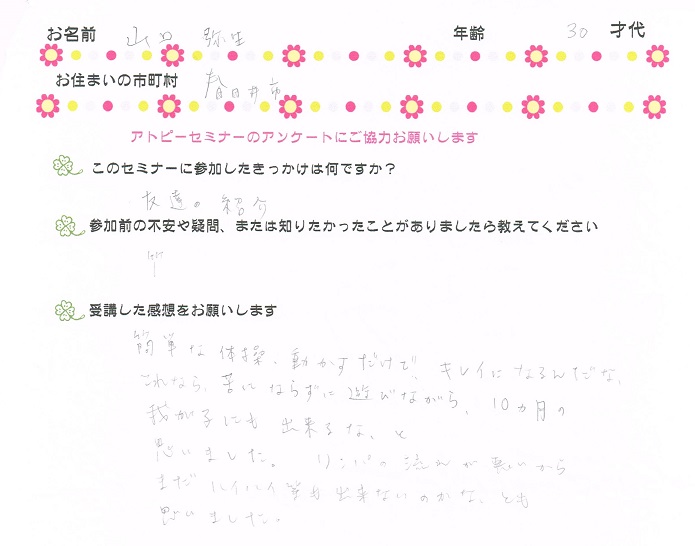 お名前 山口 弥生 年齢 30 才代
お住まいの市町村 春日井市
アトピーセミナーのアンケートにご協力お願いします
このセミナーに参加したきっかけは何ですか？
友達の紹介
参加前の不安や疑問、または知りたかったことがありましたら教えてください
受講した感想をお願いします
簡単な体操、動かすだけで、キレイになるんだな、
これなら、苦にならずに遊びながら、10ヵ月の
我が子にも出来るな、と
思いました。リンパの流れが悪いから
まだハイハイ等も出来ないのかな、とも
思いました。